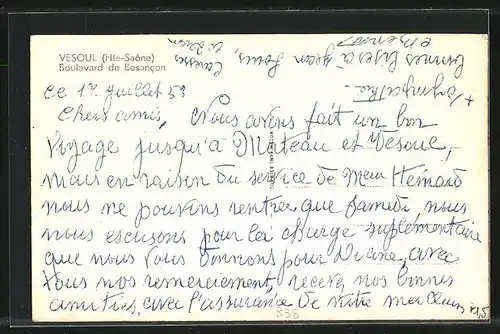 VESOUL (Hte-Saône)
Boulevard de Besançon
ce 1er juillet 53
Chers amis, Nous avons fait un bon
voyage jusqu'à Muteau et Vesoul,
mais en raison du service de Mem Hemard
nous ne pouvons rentrer que Samedi, nous
nous escusons pour la charge suplémentaire
que nous vous donnons pour Diane, avec
tous nos remerciements, recevez nos bonnes
amitiés, avec l'assurance de notre meilleur
+ sympathie.
bonnes bises à jean Louis, caresses
R38